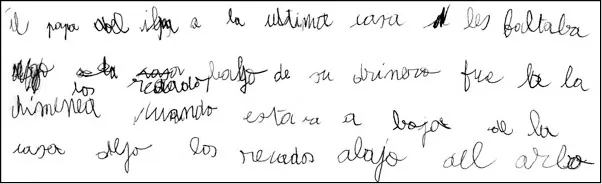 il papa del iba a la ultima casa les faltaba
los recados bajo de su drineo fue la
chimenea cuando estava a bajo de la
casa dejo los recados abajo del arbo